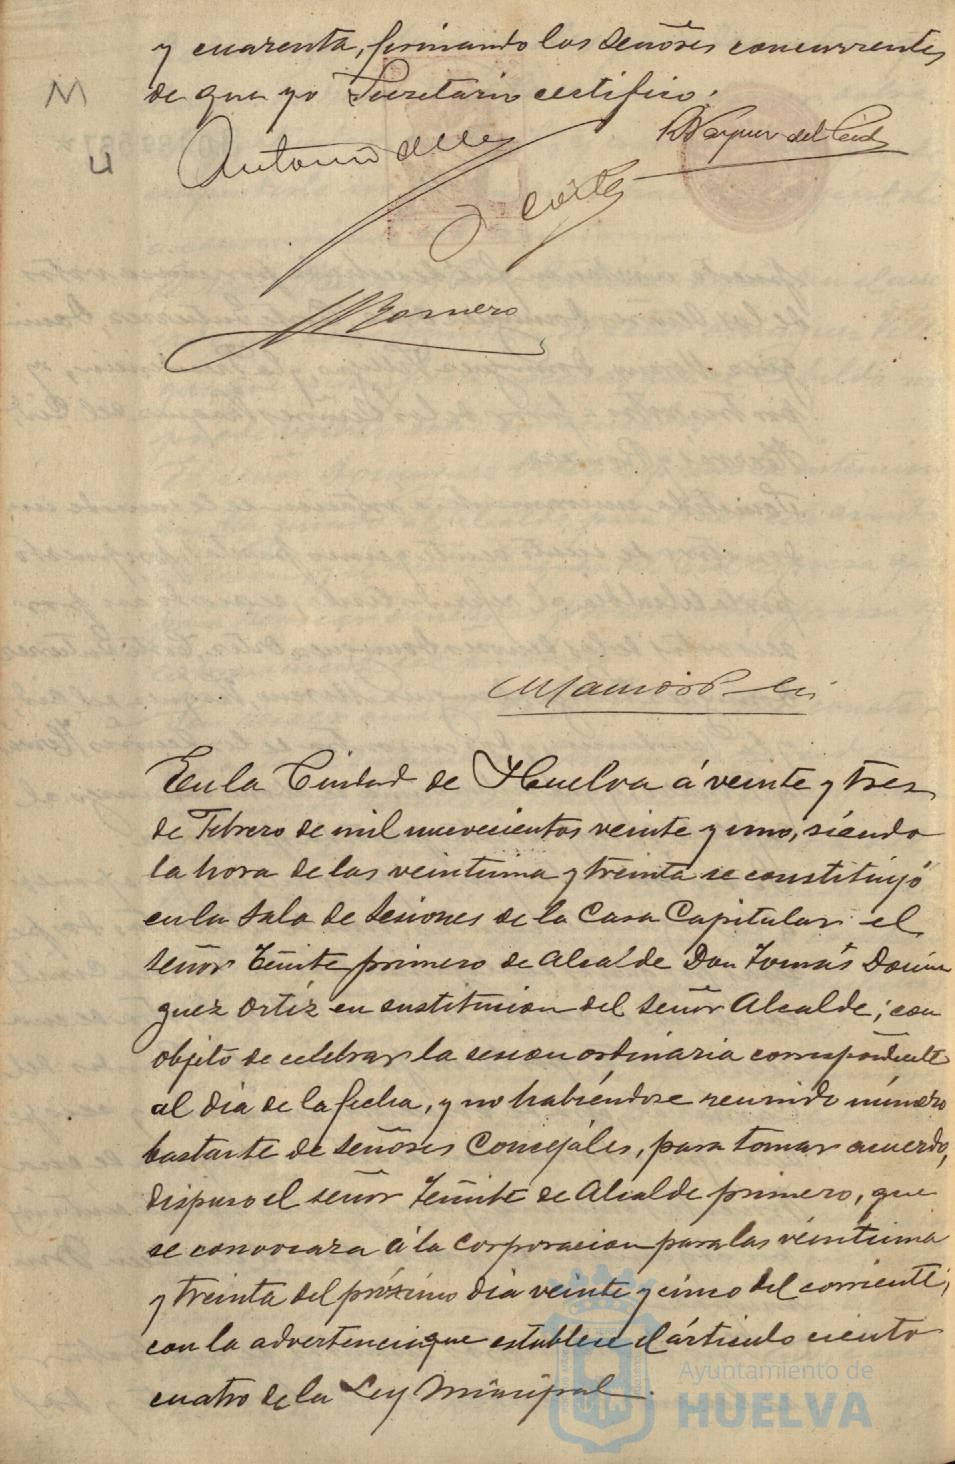 y cuarenta, firmando los Señores concurrentes
de que yo Secretario certifico.
M
u
Antonio
Vazquez del Cid
Cortes
Romero
En la Ciudad de Huelva á veinte y tres
de Febrero de mil nuevecientos veinte y uno, siendo
la hora de las veintiuna y treinta se constituyó
en la Sala de Sesiones de la Casa Capitular el
Señor Teñite primero de Alcalde Don Tomás Domin
guez Ortíz en sustitucion del Señor Alcalde; con
objeto de celebrar la sesion ordinaria correspondiente
al dia de la fecha, y no habiéndose reunido número
bastante de Señores Concejáles, para tomar acuerdo,
dispuso el señor Teñite de Alcalde primero, que
se convocara á la Corporacion para las veintiuna
y treinta del próximo dia veinte y cinco del corriente;
con la advertencia que establece el árticulo ciento
cuatro de la Ley Municipal.
Ayuntamiento de
HUELVA